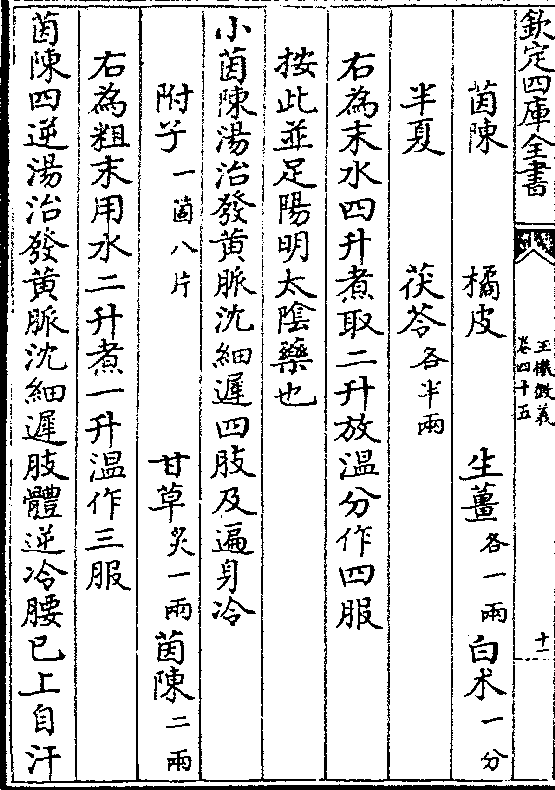 欽定四庫全書
玉機微義
卷四十五
十二
茵陳 橘皮 生薑各一兩 白术一分
半夏 茯苓各半兩
右為末水四升煮取二升放溫分作四服
按此並足陽明太陰藥也
小茵陳湯治發黄脈沈細遲四肢及遍身冷
附子一箇八片 甘草炙一兩 茵陳二兩
右為粗末用水二升煮一升溫作三服
茵陳四逆湯治發黄脈沈細遲肢體逆冷腰已上自汗